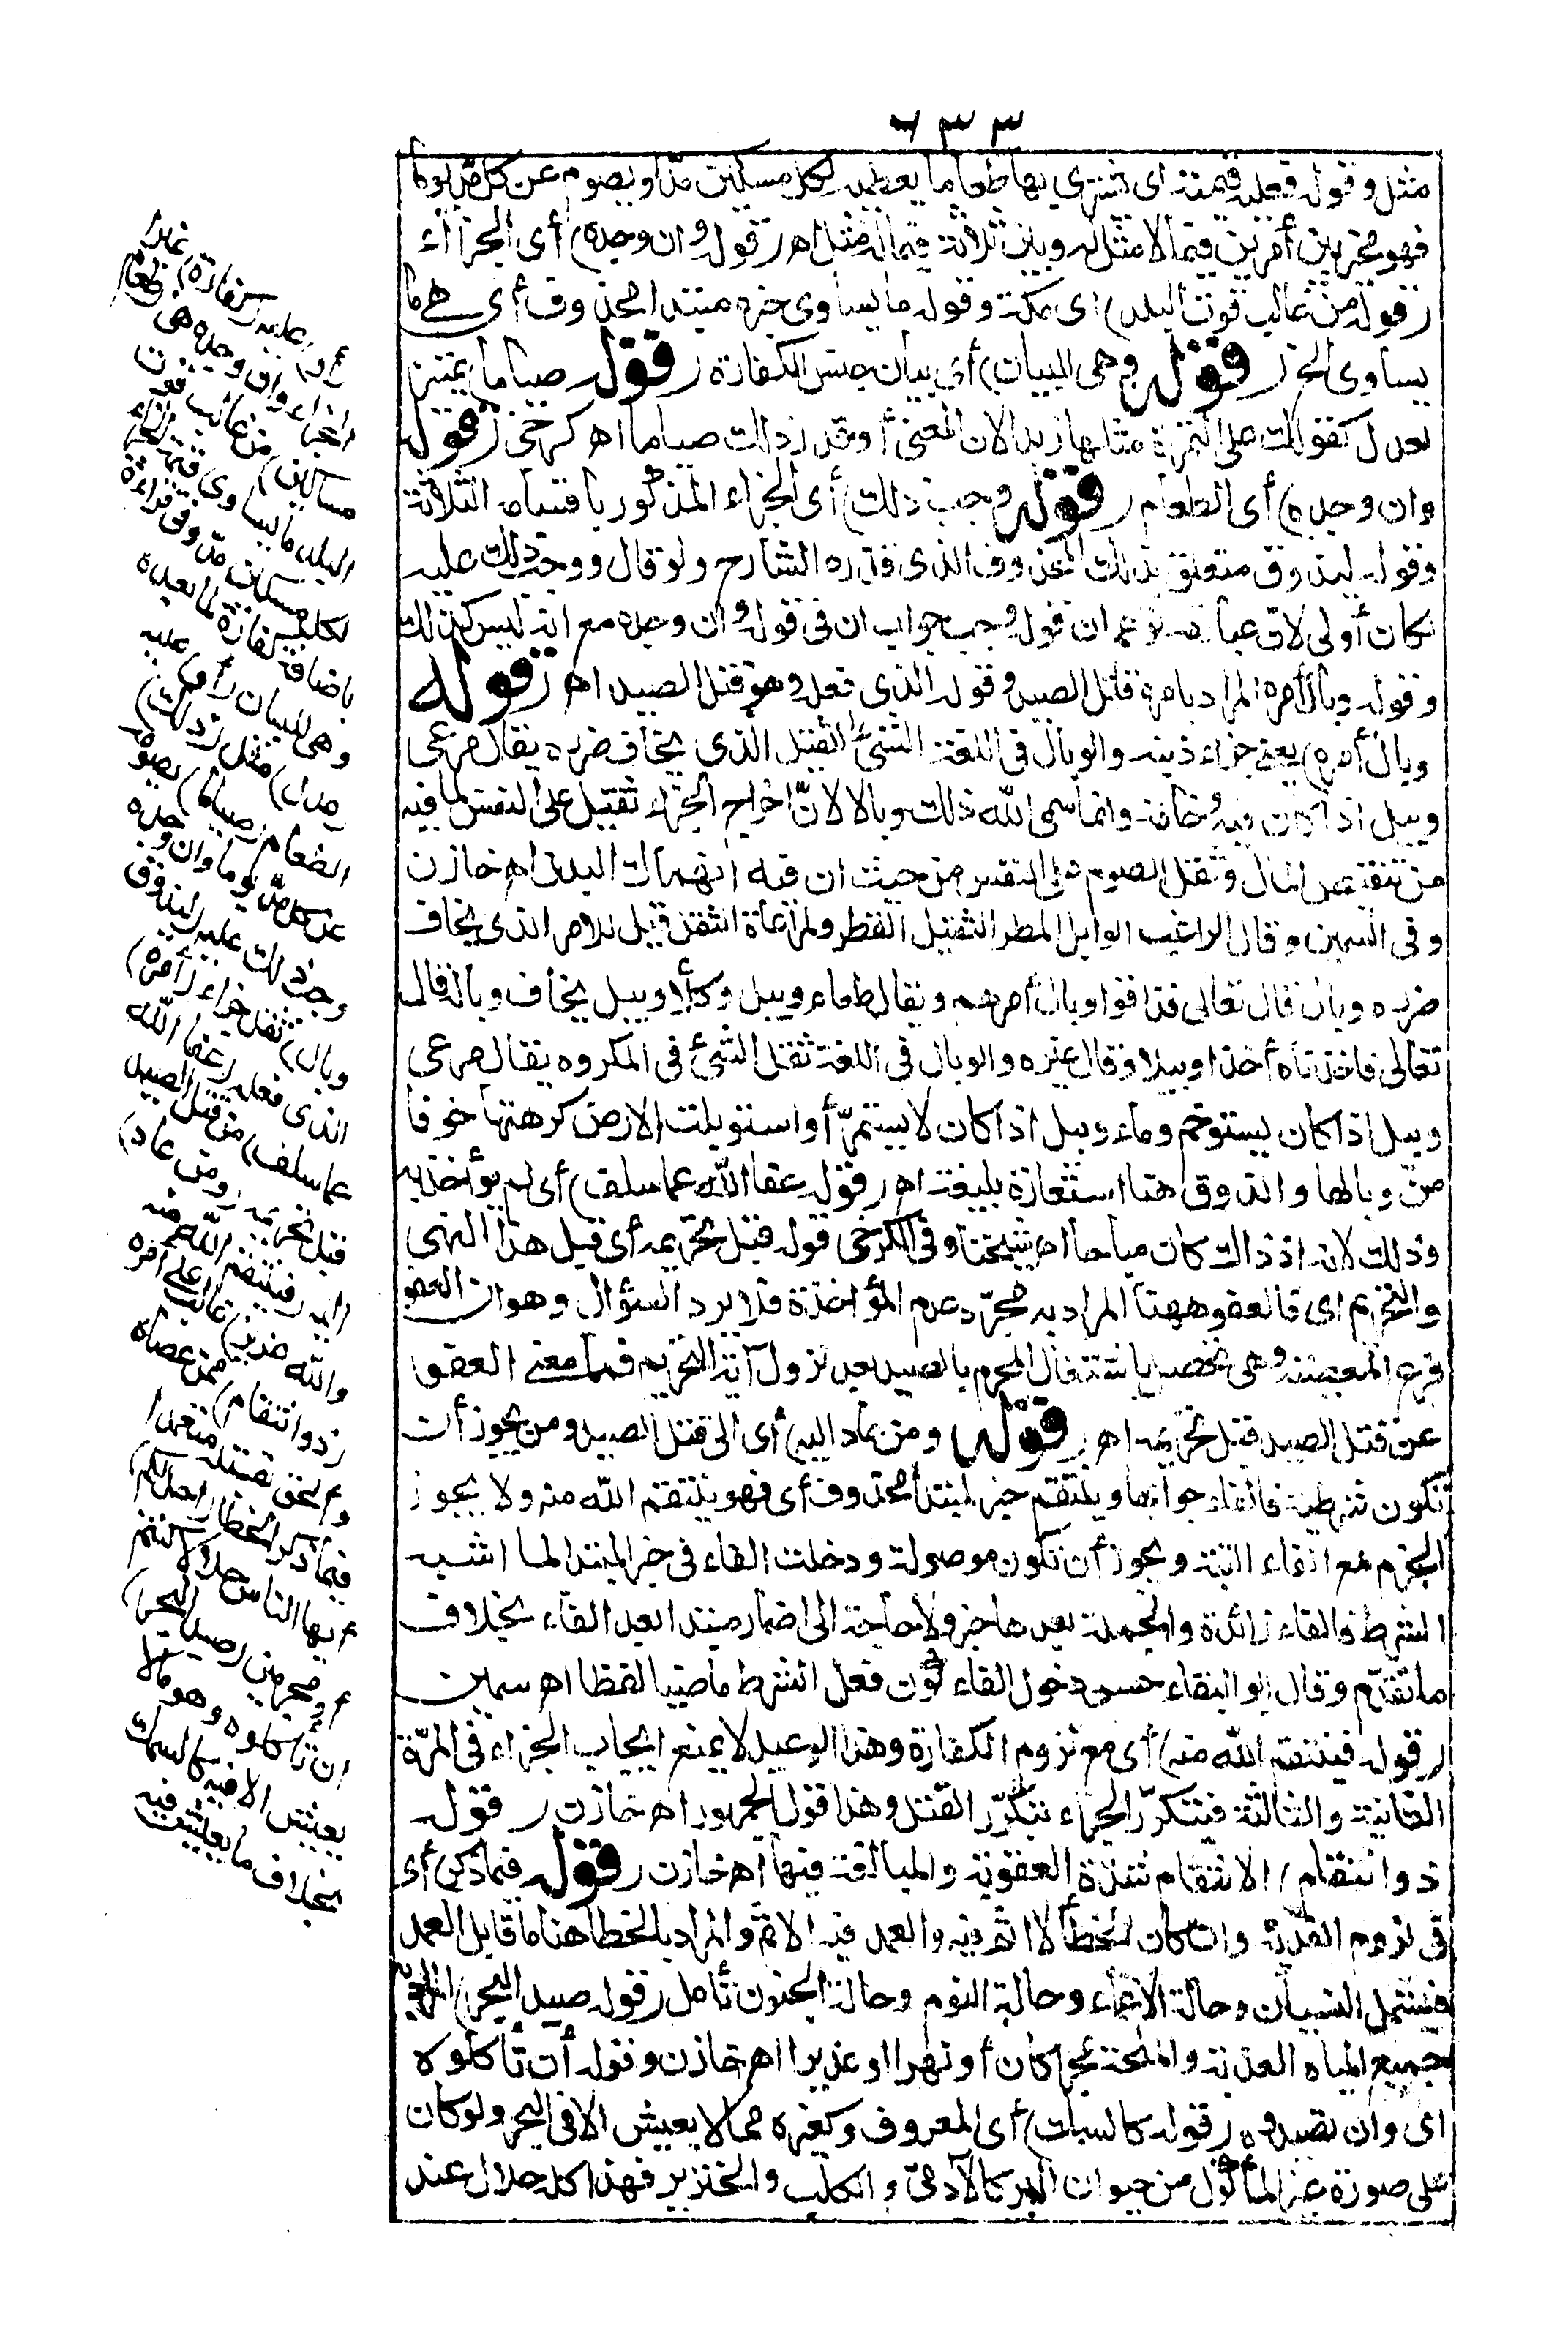 ٦٣٣
مثل وقوله فعليه قيمته اى يشترى بها طعاما يعطيه لكل مسكين مدّ او يصوم عن كل مدّ يوما
فهو مخير بين أمرين فيما لا مثل له وبين ثلاثة فيما له مثل اهـ (قوله وان وجده) أى الجزاء
(قوله من غالب قوت البلد) اى مكة وقوله ما يساوى خبره مبتدا محذوف أى هى ما
يساوى الخ (قوله وهى للبيان) أى بيان جنس الكفارة (قوله صياما) تمييز
لعدل كقولك على التمرة مثلها زبدا لان المعنى أو قدر ذلك صياما اهـ كرخى (قوله
وان وجده) أى الطعام (قوله وجب ذلك) أى الجزاء المذكور بأقسامه الثلاثة
وقوله ليذوق متعلق بذلك المحذوف الذى قدره الشارح ولو قال ووجب ذلك عليه
لكان أولى لانّ عبارته توهم ان قوله وجب جواب ان فى قوله وان وجده مع انه ليس كذلك
وقوله وبال أمره المراد بامره قتل الصيد وقوله الذى فعله وهو قتل الصيد اهـ (قوله
وبال أمره) يعنى جزاء ذنبه والوبال فى اللغة الشئ الثقيل الذى يخاف ضرره يقال مرعى
وبيل اذا كان فيه وخامة وانما سمى الله ذلك وبالا لانّ اخراج الجزاء ثقيل على النفس لما فيه
من تنقيص المال وثقل الصوم على النفس من حيث ان فيه انهماك البدن اهـ خازن
وفى السمين وقال الراغب الوابل المطر الثقيل القطر ولمراعاة الثقل قيل للامر الذى يخاف
ضرره وبال قال تعالى فذاقوا وبال أمرهم ويقال طعام وبيل وكلأ وبيل يخاف وباله قال
تعالى فاخذناه أخذا وبيلا وقال غيره والوبال فى اللغة ثقل الشئ فى المكروه يقال مرعى
وبيل اذا كان يستوخم وماء وبيل اذا كان لا يستمرأ واستوبلت الارض كرهتها خوفا
من وبالها والذوق هنا استعارة بليغة اهـ (قوله عفا الله عما سلف) أى لم يؤاخذ به
وذلك لانه اذ ذاك كان مباحا اهـ شيخنا وفى الكرخى قوله قبل تحريمه أى قبل هذا النهى
والتحريم اى فالعفو ههنا المراد به مجرّد عدم المؤاخذة فلا يرد السؤال وهو ان العفو
فرع المعصية وهى تحصل باشتغال المحرم بالصيد بعد نزول آية التحريم فما معنى العفو
عن قتل الصيد قبل تحريمه اهـ (قوله ومن عاد اليه) أى الى قتل الصيد ومن يجوز أن
تكون شرطية فالفاء جوابها وينتقم خبر لمبتدأ محذوف أى فهو ينتقم الله منه ولا يجوز
الجزم مع الفاء البتة ويجوز أن تكون موصولة ودخلت الفاء فى خبر المبتدا لما اشبه
الشرط فالفاء زائدة والجملة بعدها خبر ولا حاجة الى اضمار مبتدا بعد الفاء بخلاف
ما تقدّم وقال ابو البقاء حسن دخول الفاء كون فعل الشرط ماضيا لفظا اهـ سمين
(قوله فينتقم الله منه) أى مع لزوم الكفارة وهذا الوعيد لا يمنع ايجاب الجزاء فى المرّة
الثانية والثالثة فيتكرّر الجزاء بتكرّر القتل وهذا قول الجمهور اهـ خازن (قوله
ذو انتقام) الانتقام شدّة العقوبة والمبالغة فيها اهـ خازن (قوله فيما ذكر) أى
فى لزوم الفدية وان كان الخطأ لا اثم فيه والعمد فيه الاثم والمراد بالخطا هنا ما قابل العمد
فيشمل النسيان وحالة الاغماء وحالة النوم وحالة الجنون تأمل (قوله صيد البحر) المراد به
جميع المياه العذبة والملحة بحرا كان أو نهرا او غديرا اهـ خازن وقوله أن تأكلوه
اى وان تصيدوه (قوله كالسمك) أى المعروف وكغيره مما لا يعيش الا فى البحر ولو كان
على صورة غير المأكول من حيوان البر كالآدمىّ والكلب والخنزير فهذا كله حلال عند
(أو) عليه (كفارة) غير
الجزاء وان وجده هى (طعام
مساكين) من غالب قوت
البلد ما يساوى قيمة الجزاء
لكل مسكين مدّ وفى قراءة
باضافة كفارة لما بعده
وهى للبيان (أو) عليه
(عدل) مثل (ذلك)
الطعام (صياما) يصومه
عن كل مدّ يوما وان وجده
وجب ذلك عليه (ليذوق
وبال) ثقل جزاء (أمره)
الذى فعله (عفا الله
عما سلف) من قتل الصيد
قبل تحريمه (ومن عاد)
اليه (فينتقم الله منه
والله عزيز) غالب على أمره
(ذو انتقام) ممن عصاه
وألحق بقتله متعمدا
فيما ذكر الخطأ (أحل لكم)
أيها الناس حلالا كنتم
أو محرمين (صيد البحر)
ان تأكلوه وهو مالا
يعيش الا فيه كالسمك
بخلاف ما يعيش فيه